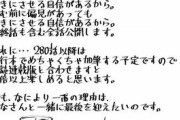 きにさせる自信があるから。
心に偏見があっても
きにさせる自信があるから。
終話も含む全話公開します。
に… 280話以降は
行本でめちゃくちゃ加筆する予定ですので
誌連載版と合わせますと
倍以上楽しめると思います。
も、なにより一番の理由は、
なさんと一緒に最後を迎えたいのです。